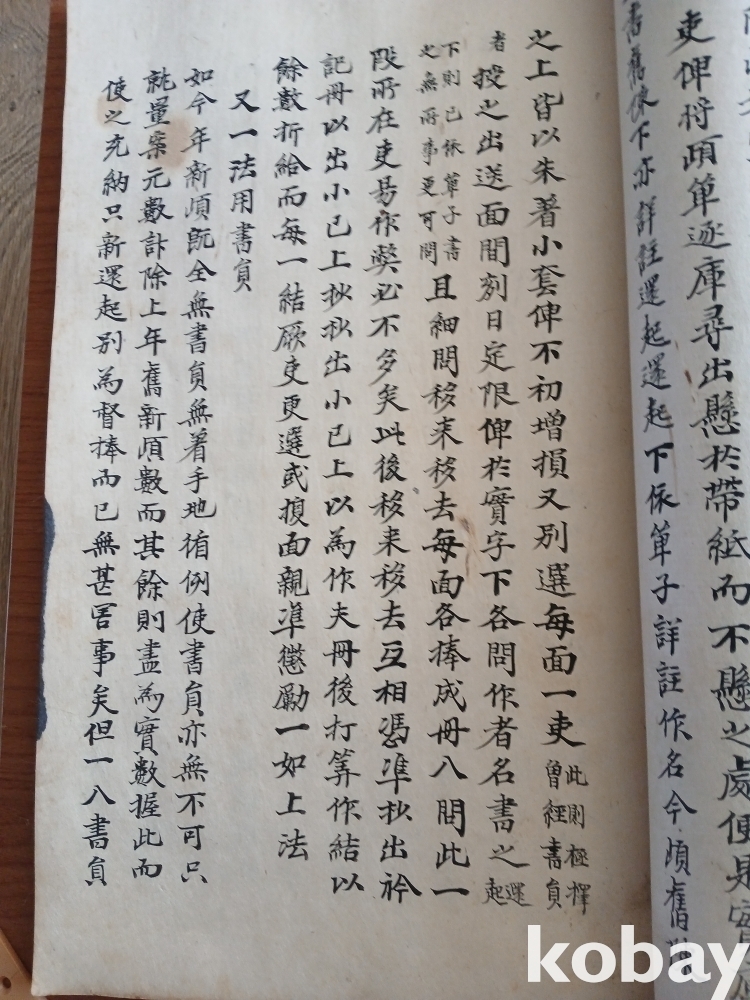 吏俾将頉草逐庫尋出懸於帶紙而不懸之處便是實
書舊依下亦詳註還起還起下依草子詳註作名今頉舊
之上皆以朱著小套俾不初增損又別選每面一吏此則極擇曾經書員
者授之出送面間刻日定限俾於實字下各問作者名書之還起
下則已依草子書之無所事更可問且細問移来移去每面各捧成冊八間此一
段所在吏易作獘必不多矣此後移来移去互相憑準抄出衿
記冊以出小已上抄抄出小已上以為作夫冊後打筭作結以
餘數折給而每一結厥吏更選或摘面親準懲勵一如上法
又一法用書員
如今年新頉既全無書員無著手地循例使書員亦無不可只
就量案元數計除上年舊新頉數而其餘則盡為實數握此而
使之充納只新還起別為督捧而已無甚害事矣但一八書員
kobay